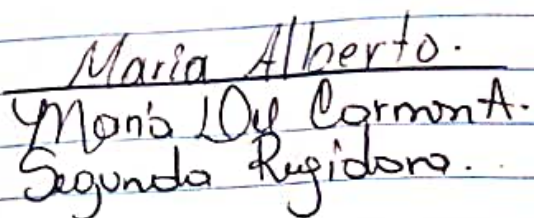 Maria Alberto.
María Del Carmen A.
Segunda Regidora.